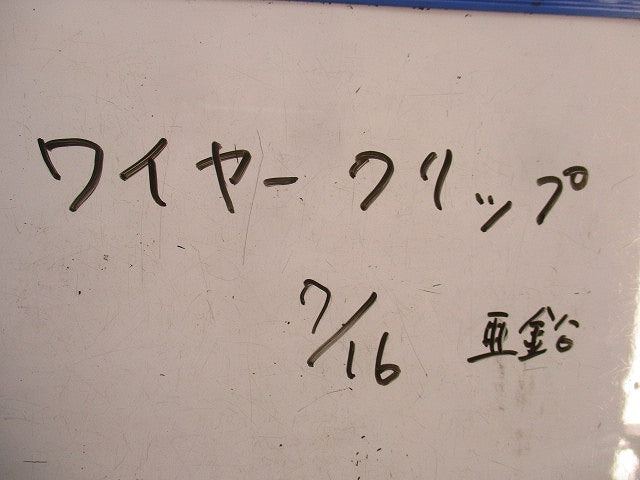 ワイヤークリップ
7/16 亜鉛